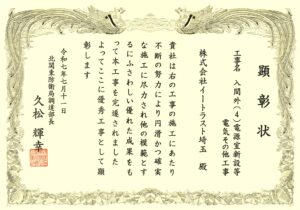 顕彰状
工事名 入間外(4)電源室新設等
電気その他工事
株式会社イートラスト埼玉 殿
貴社は右の工事の施工にあたり
不断の努力により円滑かつ確実
な施工に尽力され他の模範とす
るにふさわしい優れた成果をも
って本工事を完遂されました
よってここに優秀工事として顕
彰します
令和七年七月十一日
北関東防衛局調達部長
久松 輝幸